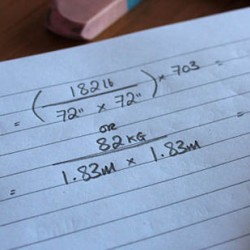 = (182lb
72" x 72") x 703 =
OR
82 KG
= 1.83m x 1.83m